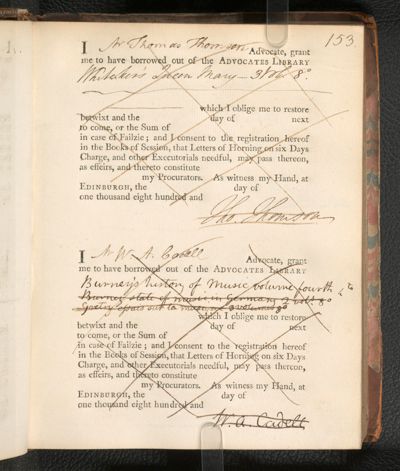 153
I Mr Thomas Thomson Advocate, grant
me to have borrowed out of the ADVOCATES LIBRARY
Whitaker's Queen Mary — 3 Vol. 8o.
which I oblige me to restore
betwixt and the day of next
to come, or the Sum of
in case of Failzie; and I consent to the registration hereof
in the Books of Session, that Letters of Horning on six Days
Charge, and other Executorials needful, may pass thereon,
as effeirs, and thereto constitute
my Procurators. As witness my Hand, at
EDINBURGH, the day of
one thousand eight hundred and
Tho. Thomson
I Mr W. A. Cadell Advocate, grant
me to have borrowed out of the ADVOCATES LIBRARY
Burney's history of Music volume fourth 4to
Burney state of music in Germany 2 vols. 8o
out to
which I oblige me to restore
betwixt and the day of next
to come, or the Sum of
in case of Failzie; and I consent to the registration hereof
in the Books of Session, that Letters of Horning on six Days
Charge, and other Executorials needful, may pass thereon,
as effeirs, and thereto constitute
my Procurators. As witness my Hand, at
EDINBURGH, the day of
one thousand eight hundred and
W. A. Cadell